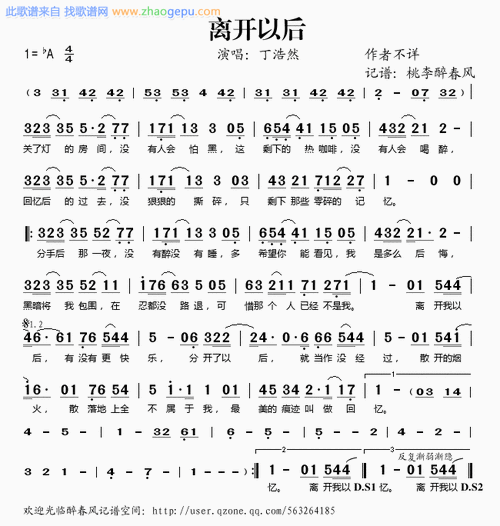 此歌谱来自 找歌谱网 www.zhaogepu.com
离开以后
1=ᵇA 4/4
演唱：丁浩然
作者不详
记谱：桃李醉春风
(3 31 42 42 | 53 53 42 42 | 31 31 42 42 | 2 - 07 32) |
323 35 5·2 77 | 171 13 3 05 | 654 41 15 05 | 432 21 2 - |
关了灯 的 房 间，没 有人会 怕 黑，这 剩下的 热 咖啡，没 有人会 喝 醉，
323 35 5·2 77 | 171 13 3 03 | 43 21 712 27 | 1 - 0 0 |
回忆后 的 过 去，没 狠狠的 撕 碎，只 剩下 那些 零碎的 记 忆。
323 35 52 77 | 171 13 305 05 | 654 41 15 05 | 432 21 2 - |
分手后 那 一夜，没 有醉没 有 睡，多 希望你 能 看见，我 是多么 后 悔，
323 35 52 22 | 176 63 5 05 | 63 211 71 271 | 1 - 01 544 |
黑暗将 我 包围，在 忍都没 路 退，可 惜那 个 人 已经 不是我。 离 开我以
1.2
46· 61 76 544 | 5 - 06 322 | 24· 02 64 544 | 5 - 05 541 |
后， 有 没有 更 快 乐， 分 开了以 后， 就 当作 没经 过， 散 开的烟
16· 01 76 544 | 5 1·1 01 | 24 02 1·1 17 | 1 - (03 14 |
火， 散 落地 上全 不 属于 我，最 美的 痕迹 叫 做 回 忆。
4 - 5 - | 1 - 32 61 | 6 - 6 - | 4 - 5 - |
反复渐弱渐隐
3 2 1 - | 4 - 7 - | 1 - - -) | 1 - 01 544 | 1 - 01 544 |
忆。 离 开我以 D.S1 忆。 离 开我以 D.S2
欢迎光临醉春风记谱空间：http://user.qzone.qq.com/563264185